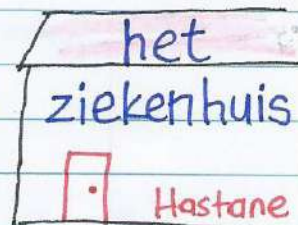 het
ziekenhuis
Hastane